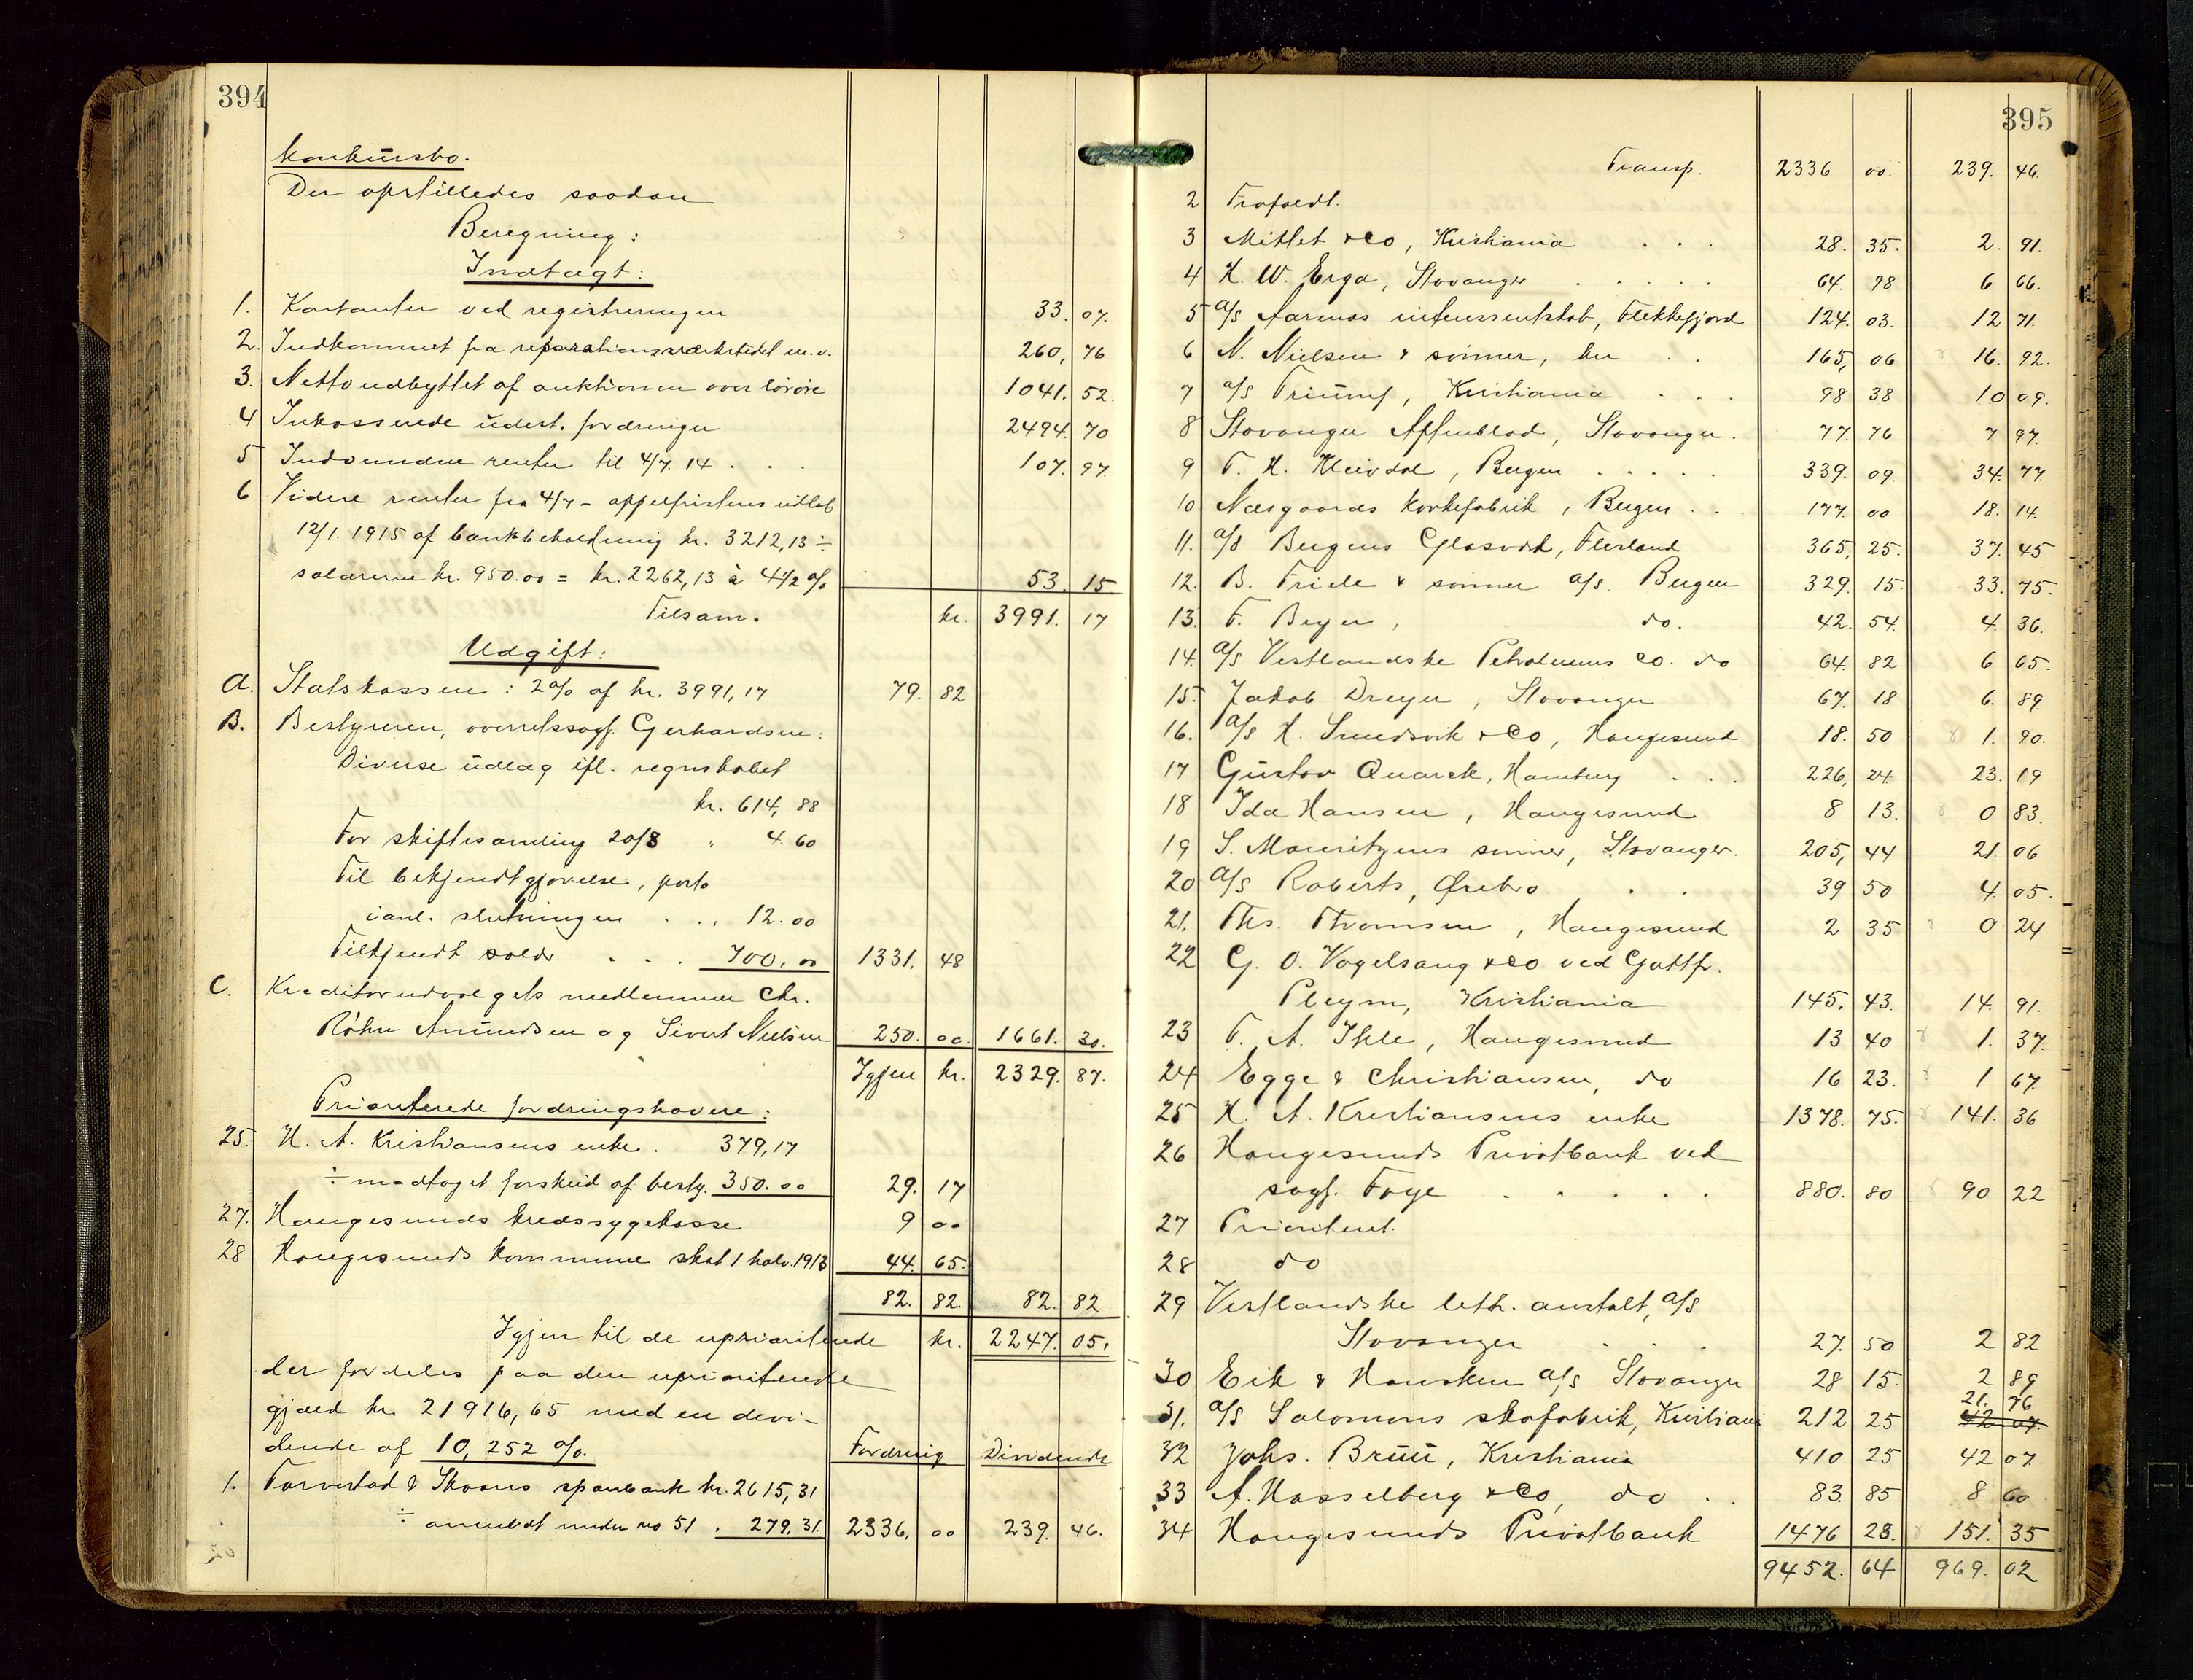 394
Konkursbo.
Der opstilledes saadan
Beregning:
Indtægt:
1. Kontanter ved registreringen 33. 07.
2. Indkommet fra reparationsværkstedet m.v. 260, 76
3. Nettoudbyttet af auktionen over løsøre 1041. 52.
4 Inkasserede udest. fordringer 2494. 70
5 Indvundne renter til 4/7. 14 . . . 107. 97.
6 Videre renter fra 4/7 - appelfristens udløb
12/1. 1915 af bankbeholdning kr. 3212,13 ÷
salærerne kr. 950.00 = kr. 2262,13 à 4 1/2 % 53. 15
Tilsam. kr. 3991. 17
Udgift:
A. Statskassen: 2% af kr. 3991,17 79. 82
B. Bestyreren, overretssagf. Gerhardsen:
Diverse udlæg ifl. regnskabet
kr. 614, 88
For skiftesamling 20/8 " 4. 60
Til bekjendtgjørelse, porto
i anl. slutningen . . " 12.00
Tilkjendt salær . . . 700. 00 1331. 48
C. Kreditorudvalgets medlemmer Chr.
Røhr Amundsen og Sivert Nielsen 250. 00. 1661. 30.
Igjen kr. 2329. 87.
Prioriterede fordringshavere:
25. H. A. Kristiansens enke . 379,17
÷ modtaget forskud af besty. 350.00 29. 17
27. Haugesunds kredssygekasse 9 00
28 Haugesunds kommune skat 1 halv. 1913 44. 65.
82. 82. 82. 82
Igjen til de uprioriterede kr. 2247. 05.
der fordeles paa den uprioriterede
gjæld kr. 21916,65 med en divi-
dende af 10,252 %. Fordring Dividende
1. Torvestad & Skaares sparebank kr. 2615,31
÷ anmeldt under no 51 . 279.31. 2336, 00 239. 46.
395
Transp. 2336 00. 239. 46.
2 Frafaldt.
3 Mittet & Co, Kristiania . . . 28. 35. 2. 91.
4 H. W. Erga, Stavanger . . . . . 64. 98 6 66.
5 A/S Aarenes interessentskab, Flekkefjord 124. 03. 12 71.
6 N. Nielsen & sønner, her . . 165, 06 16. 92.
7 A/S Triumf, Kristiania . . . 98 38 10 09.
8 Stavanger Aftenblad, Stavanger. 77. 76 7 97.
9 T. H. Kleivdal, Bergen . . . . . 339. 09. 34. 77
10 Næsgaards korkefabrik, Bergen . . 177. 00 18. 14.
11. A/S Bergens Glasværk, Flesland 365, 25. 37. 45
12. B. Friele & sønner A/S. Bergen 329. 15. 33. 75.
13. F. Beyer, do. 42. 54. 4. 36.
14. A/S Vestlandske Petroleums Co. do 64. 82 6 65.
15. Jakob Dreyer, Stavanger 67. 18 6. 89
16. A/S H. Smedsvik & Co, Haugesund 18. 50 1. 90.
17 Gustav Quarck, Hamburg . . . 226, 24. 23. 19
18 Ida Hansen, Haugesund 8 13. 0 83.
19 S. Mauritzens sønner, Stavanger. 205, 44 21. 06
20 A/S Roberts, Ørebro . . 39 50 4. 05.
21. Ths. Thomsen, Haugesund 2 35 0 24
22 G. O. Vogelsang & Co ved Gottfr.
Pleym, Kristiania 145. 43. 14. 91.
23 T. A. Ihle, Haugesund 13 40 1. 37.
24 Egge & Christiansen, do 16 23. 1 67.
25 H. A. Kristiansens enke 1378. 75. 141. 36
26 Haugesunds Privatbank ved
sagf. Foye . . . . . 880. 80 90 22
27 Prioriteret.
28 do
29 Vestlandske lith. anstalt, A/S
Stavanger . . . 27. 50 2 82
30 Eik & Hausken A/S Stavanger 28 15. 2 89
31. A/S Salomons skofabrik, Kristiani 212 25 21. 76 42 07.
32 Johs. Bruu, Kristiania 410 25 42 07.
33 A. Hasselberg & Co, do . . 83. 85 8 60
34 Haugesunds Privatbank 1476 28. 151. 35
9452. 64 969. 02